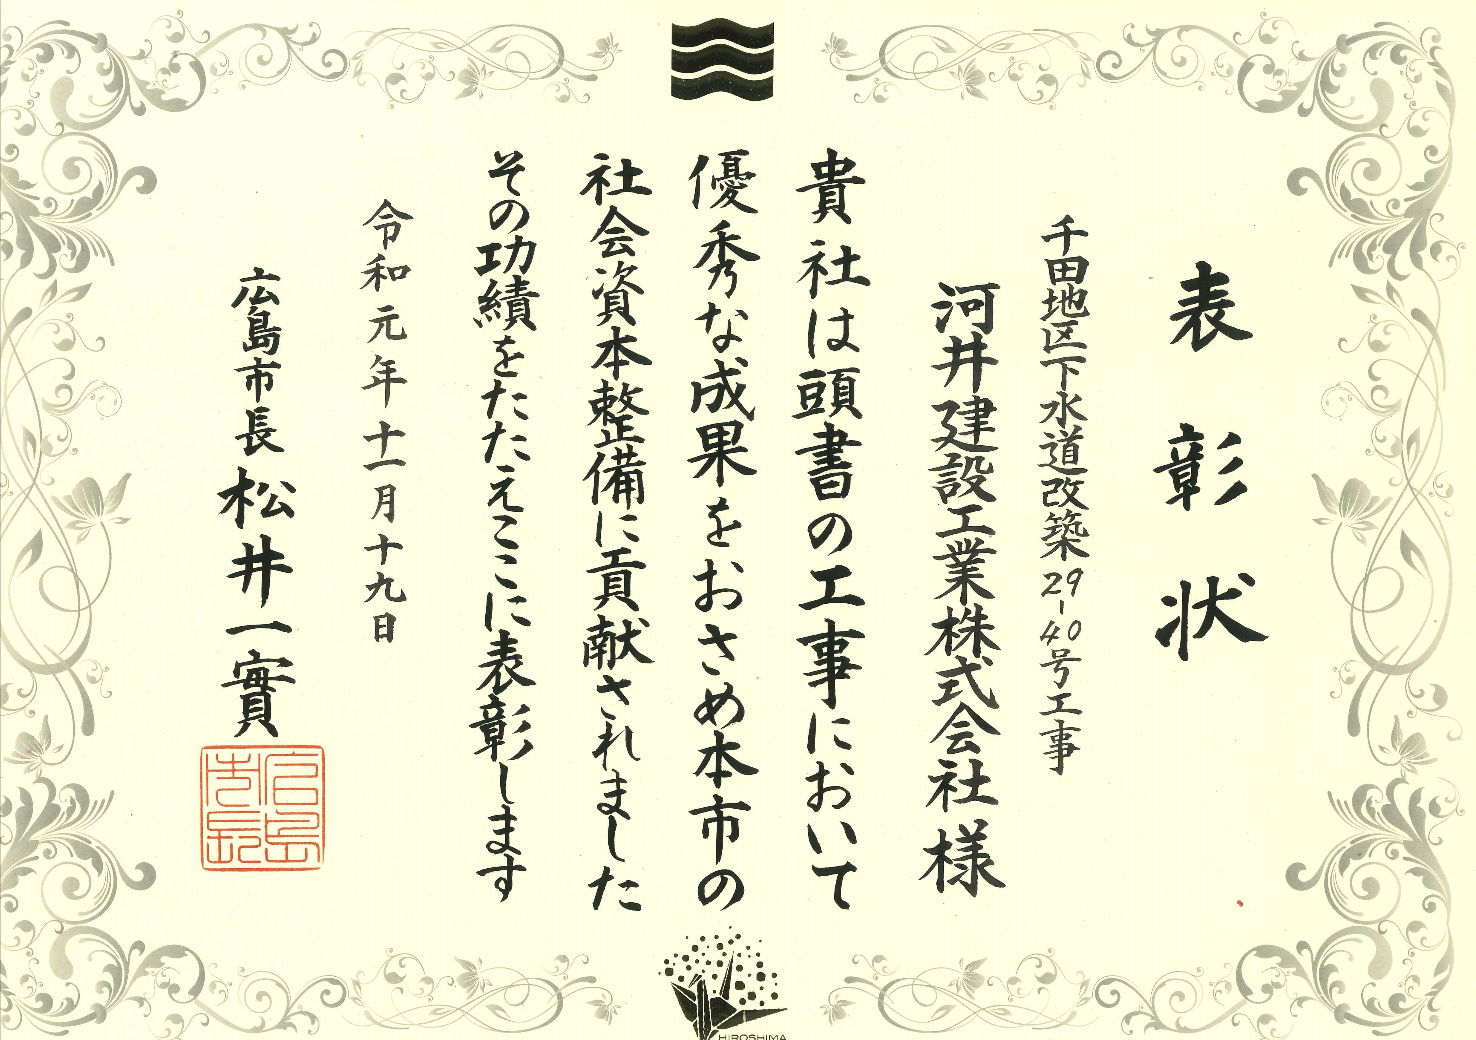 表彰状
千田地区下水道改築29-40号工事
河井建設工業株式会社様
貴社は頭書の工事において
優秀な成果をおさめ本市の
社会資本整備に貢献されました
その功績をたたえここに表彰します
令和元年十一月十九日
広島市長松井一實
広島市長
HIROSHIMA